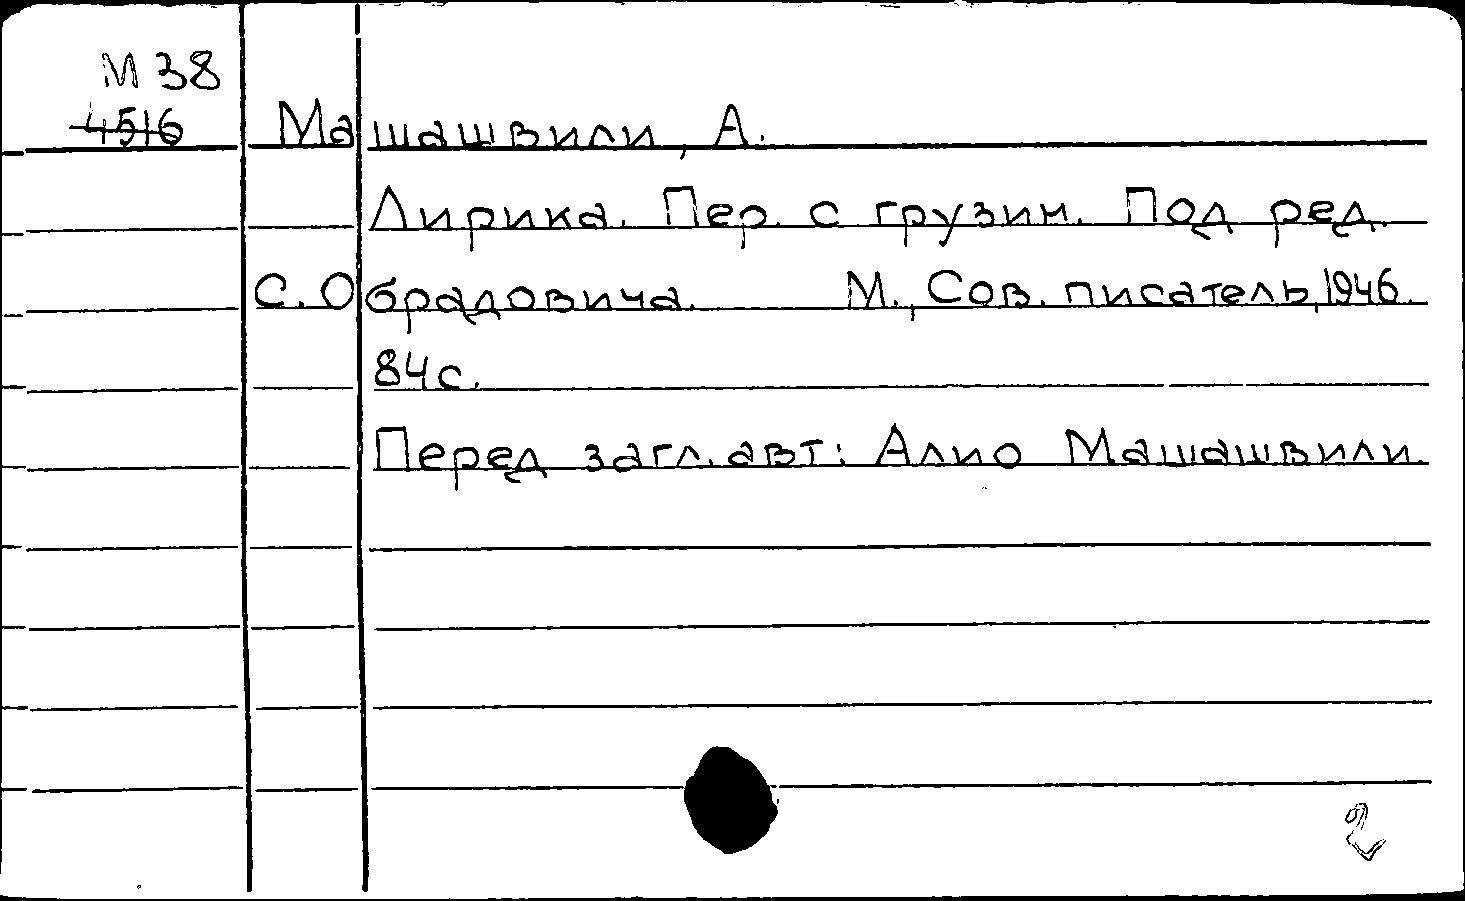 М 38
4516
Машашвили, А.
Лирика. Пер. с грузин. Под ред.
С. Обрадовича. М., Сов. писатель, 1946.
84 с.
Перед загл. авт: Алио Машашвили.
2